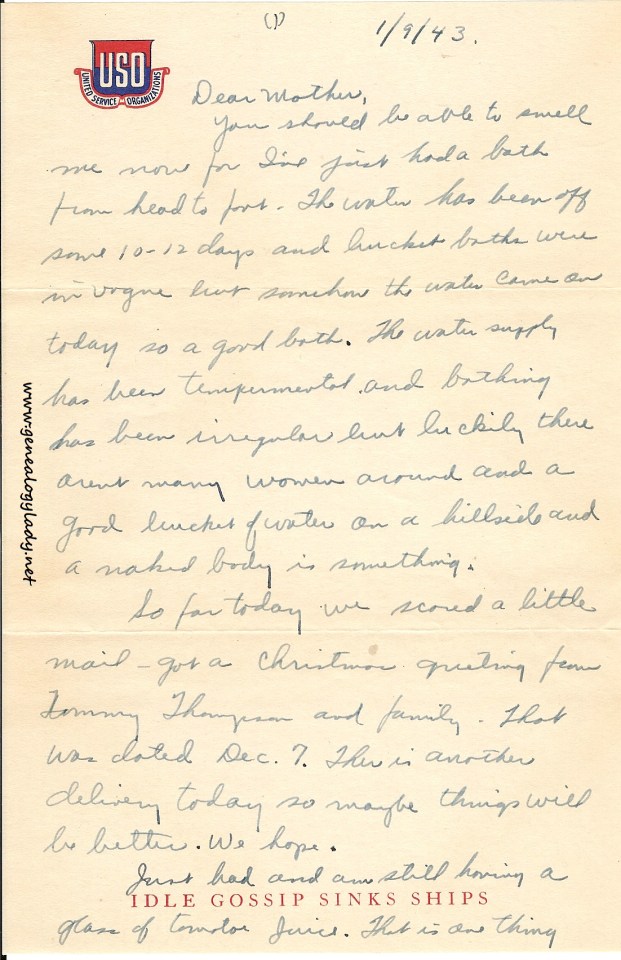 (1)
1/9/43.
USO
UNITED SERVICE ORGANIZATIONS
Dear Mother,
You should be able to smell
me now for I've just had a bath
from head to foot - The water has been off
some 10-12 days and bucket baths were
in vogue but somehow the water came on
today so a good bath. The water supply
has been tempermental and bathing
has been irregular but luckily there
arent many women around and a
good bucket of water on a hillside and
a naked body is something.
So far today we scored a little
mail - got a Christmas greeting from
Tommy Thompson and family - That
was dated Dec. 7. Ther is another
delivery today so maybe things will
be better. We hope.
Just had and am still having a
IDLE GOSSIP SINKS SHIPS
glass of tomatoe juice. That is one thing
www.genealogylady.net